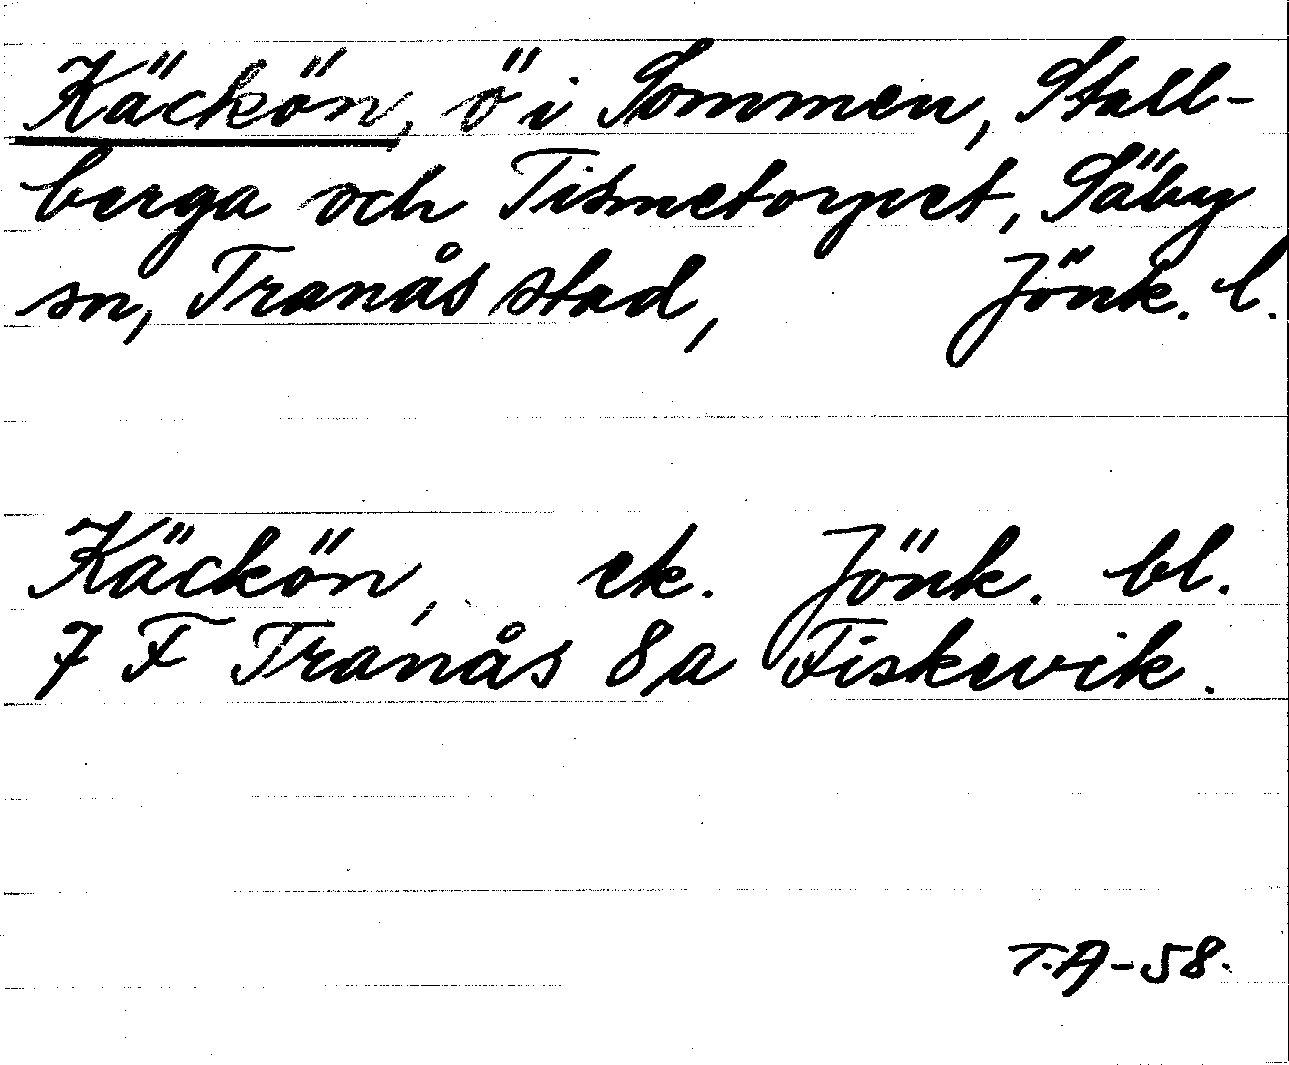 Käckön, ö i Sommen, Stall-
berga och Tismetorpet, Säby
sn, Tranås stad, Jönk. l.
Käckön, ek. Jönk. bl.
7 F Tranås 8a Fiskevik.
T.A-58.